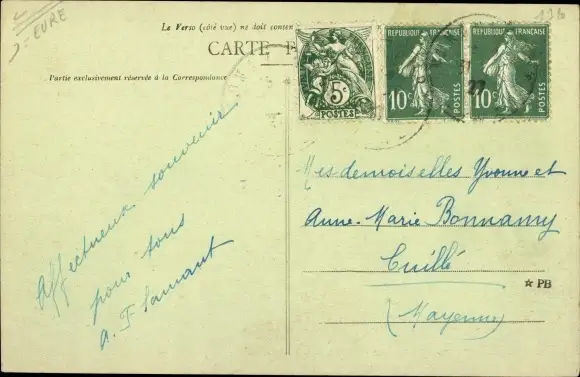 J=EURE
Le Verso (côté vue) ne doit conten
CARTE P
Partie exclusivement réservée à la Correspondance
5c
POSTES
REPUBLIQUE FRANÇAISE
10c
POSTES
REPUBLIQUE FRANÇAISE
10c
POSTES
27
Affectueux souvenir
pour tous
a. Flamant
Mesdemoiselles Yvonne et
Anne-Marie Bonnamy
Cuillé
☆ PB
(Mayenne)